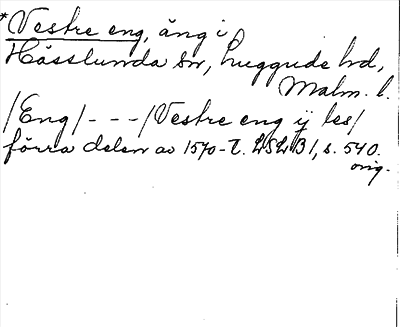 *Vestre eng, äng i
Hässlunda sn, Luggude hd,
Malm. l.
/Eng/ - - - /Vestre eng ij les/
förra delen av 1570-t. LSLB 1, s. 540.
orig.